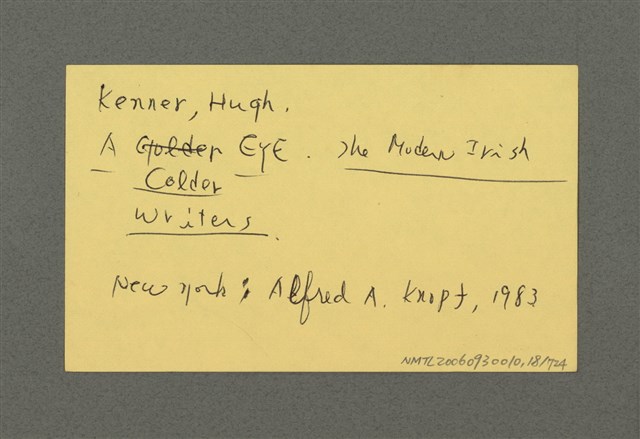 Kenner, Hugh.
A Golder EYE. The Modern Irish
Colder
Writers.
New York: Alfred A. Knopf, 1983
NMTL20060930010,18/724